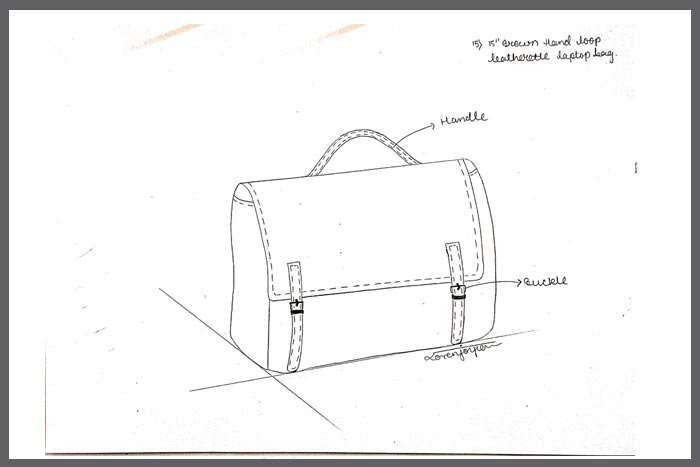 15) 15" Brown Hand loop
leatherette laptop bag.
Handle
Buckle